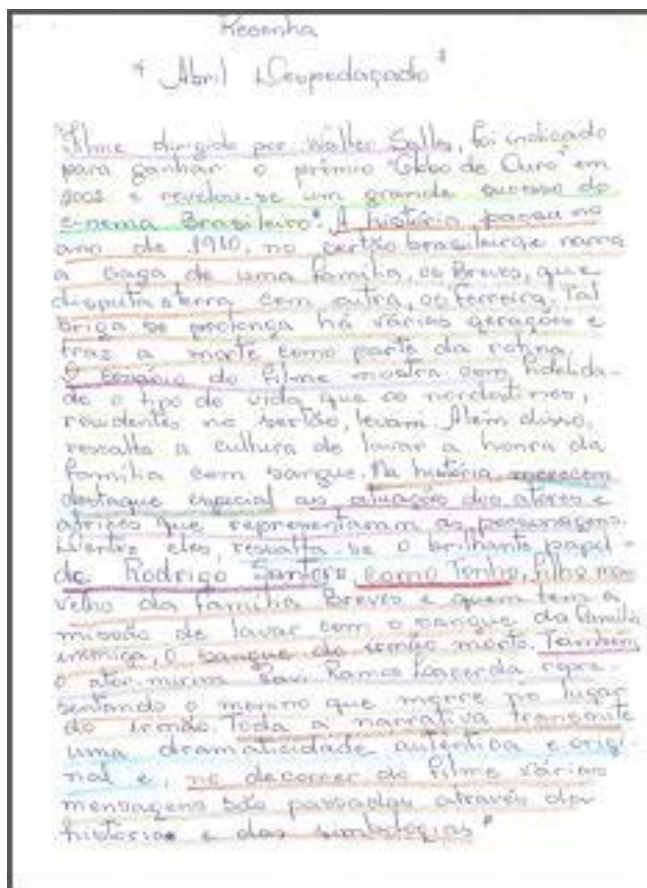 Resenha
"Abril Despedaçado"
"Filme dirigido por Walter Salles, foi indicado
para ganhar o prêmio "Globo de Ouro" em
2002 e revelou-se um grande sucesso do
cinema Brasileiro". A história passa no
ano de 1910, no sertão brasileiro e narra
a saga de uma família, os Breves, que
disputa terra com outra, os Ferreira. Tal
briga se prolonga há várias gerações e
traz a morte como parte da rotina.
O cenário do filme mostra com fidelida-
de o tipo de vida que os nordestinos,
residentes no sertão, levam. Além disso,
ressalta a cultura de lavar a honra da
família com sangue. Na história merecem
destaque especial as atuações dos atores e
atrizes que representaram as personagens.
Dentre eles, ressalta-se o brilhante papel
de Rodrigo Santoro como Tonho, filho mais
velho da família Breves e quem tem a
missão de lavar com o sangue da família
inimiga, o sangue do irmão morto. Também
o ator-mirim Ravi Ramos Lacerda repre-
sentando o menino que morre no lugar
do irmão. Toda a narrativa transmite
uma dramaticidade autêntica e origi-
nal e, no decorrer do filme várias
mensagens são passadas através das
histórias e das simbologias"